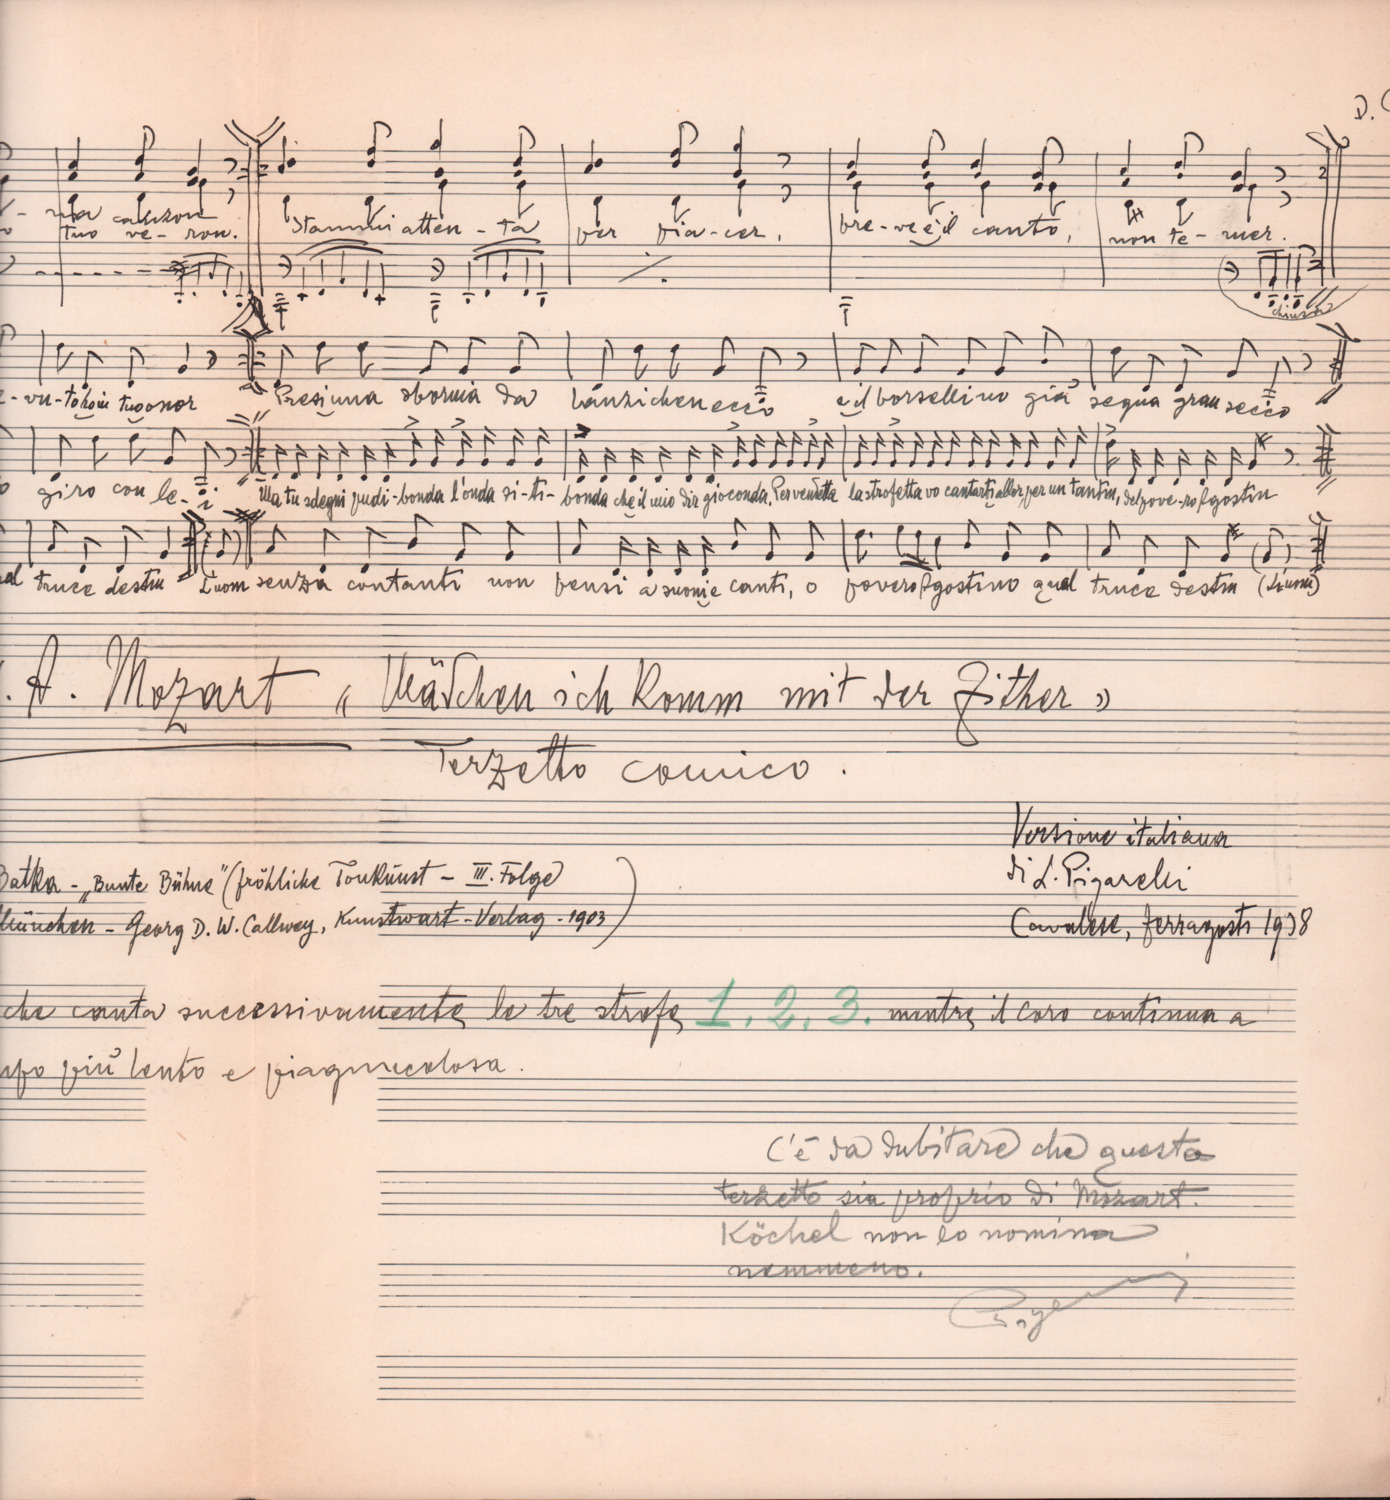 D. C
- na canzon Stammi atten - ta per pia - cer, bre - ve è il canto, non te - mer.
tuo ve - ron.
chiusa
- vu - to hoin tuo onor Presi una sbornia da Lanzichenecco e il borsellino già segna gran secco
giro con le - i Ma tu sdegni pudi - bonda l'onda si - ti - bonda che il mio dir gioconda. Per vendetta la strofetta vo cantarti allor per un tantin, del pove - ro Agostin
al truce destin L'uom senza contanti non pensi a suoni e canti, o povero Agostino qual truce destin (L'uom)
. A. Mozart « Mädchen ich komm mit der Zither »
Terzetto comico.
Versione italiana
Batka - „Bunte Bühne" (fröhliche Tonkunst - III. Folge
di L. Pigarelli
München - Georg D. W. Callwey, Kunstwart - Verlag - 1903)
Cavalese, ferragosto 1938
che canta successivamente le tre strofe 1. 2. 3. mentre il coro continua a
più lento e piagnucolosa.
C'è da dubitare che questo
terzetto sia proprio di Mozart.
Köchel non lo nomina
nemmeno.